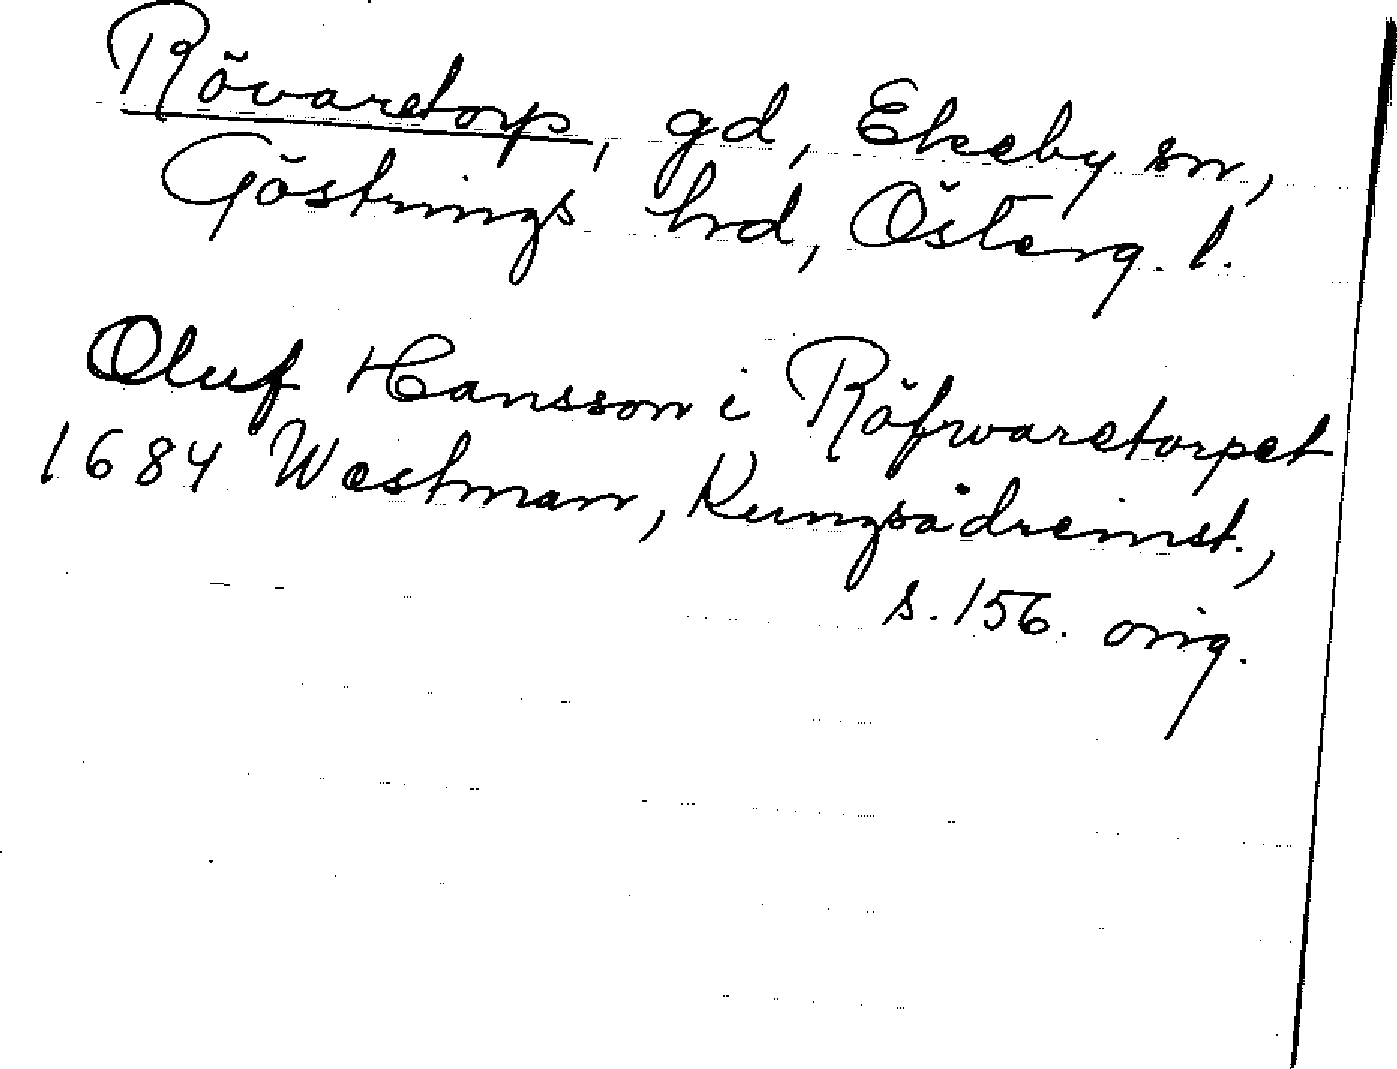 Rövaretorp, gd, Ekeby sn,
Göstrings hrd, Österg. l.
Oluf Hansson i Röfwaretorpet
1684 Westman, Kungsådreinst.,
s. 156. orig.